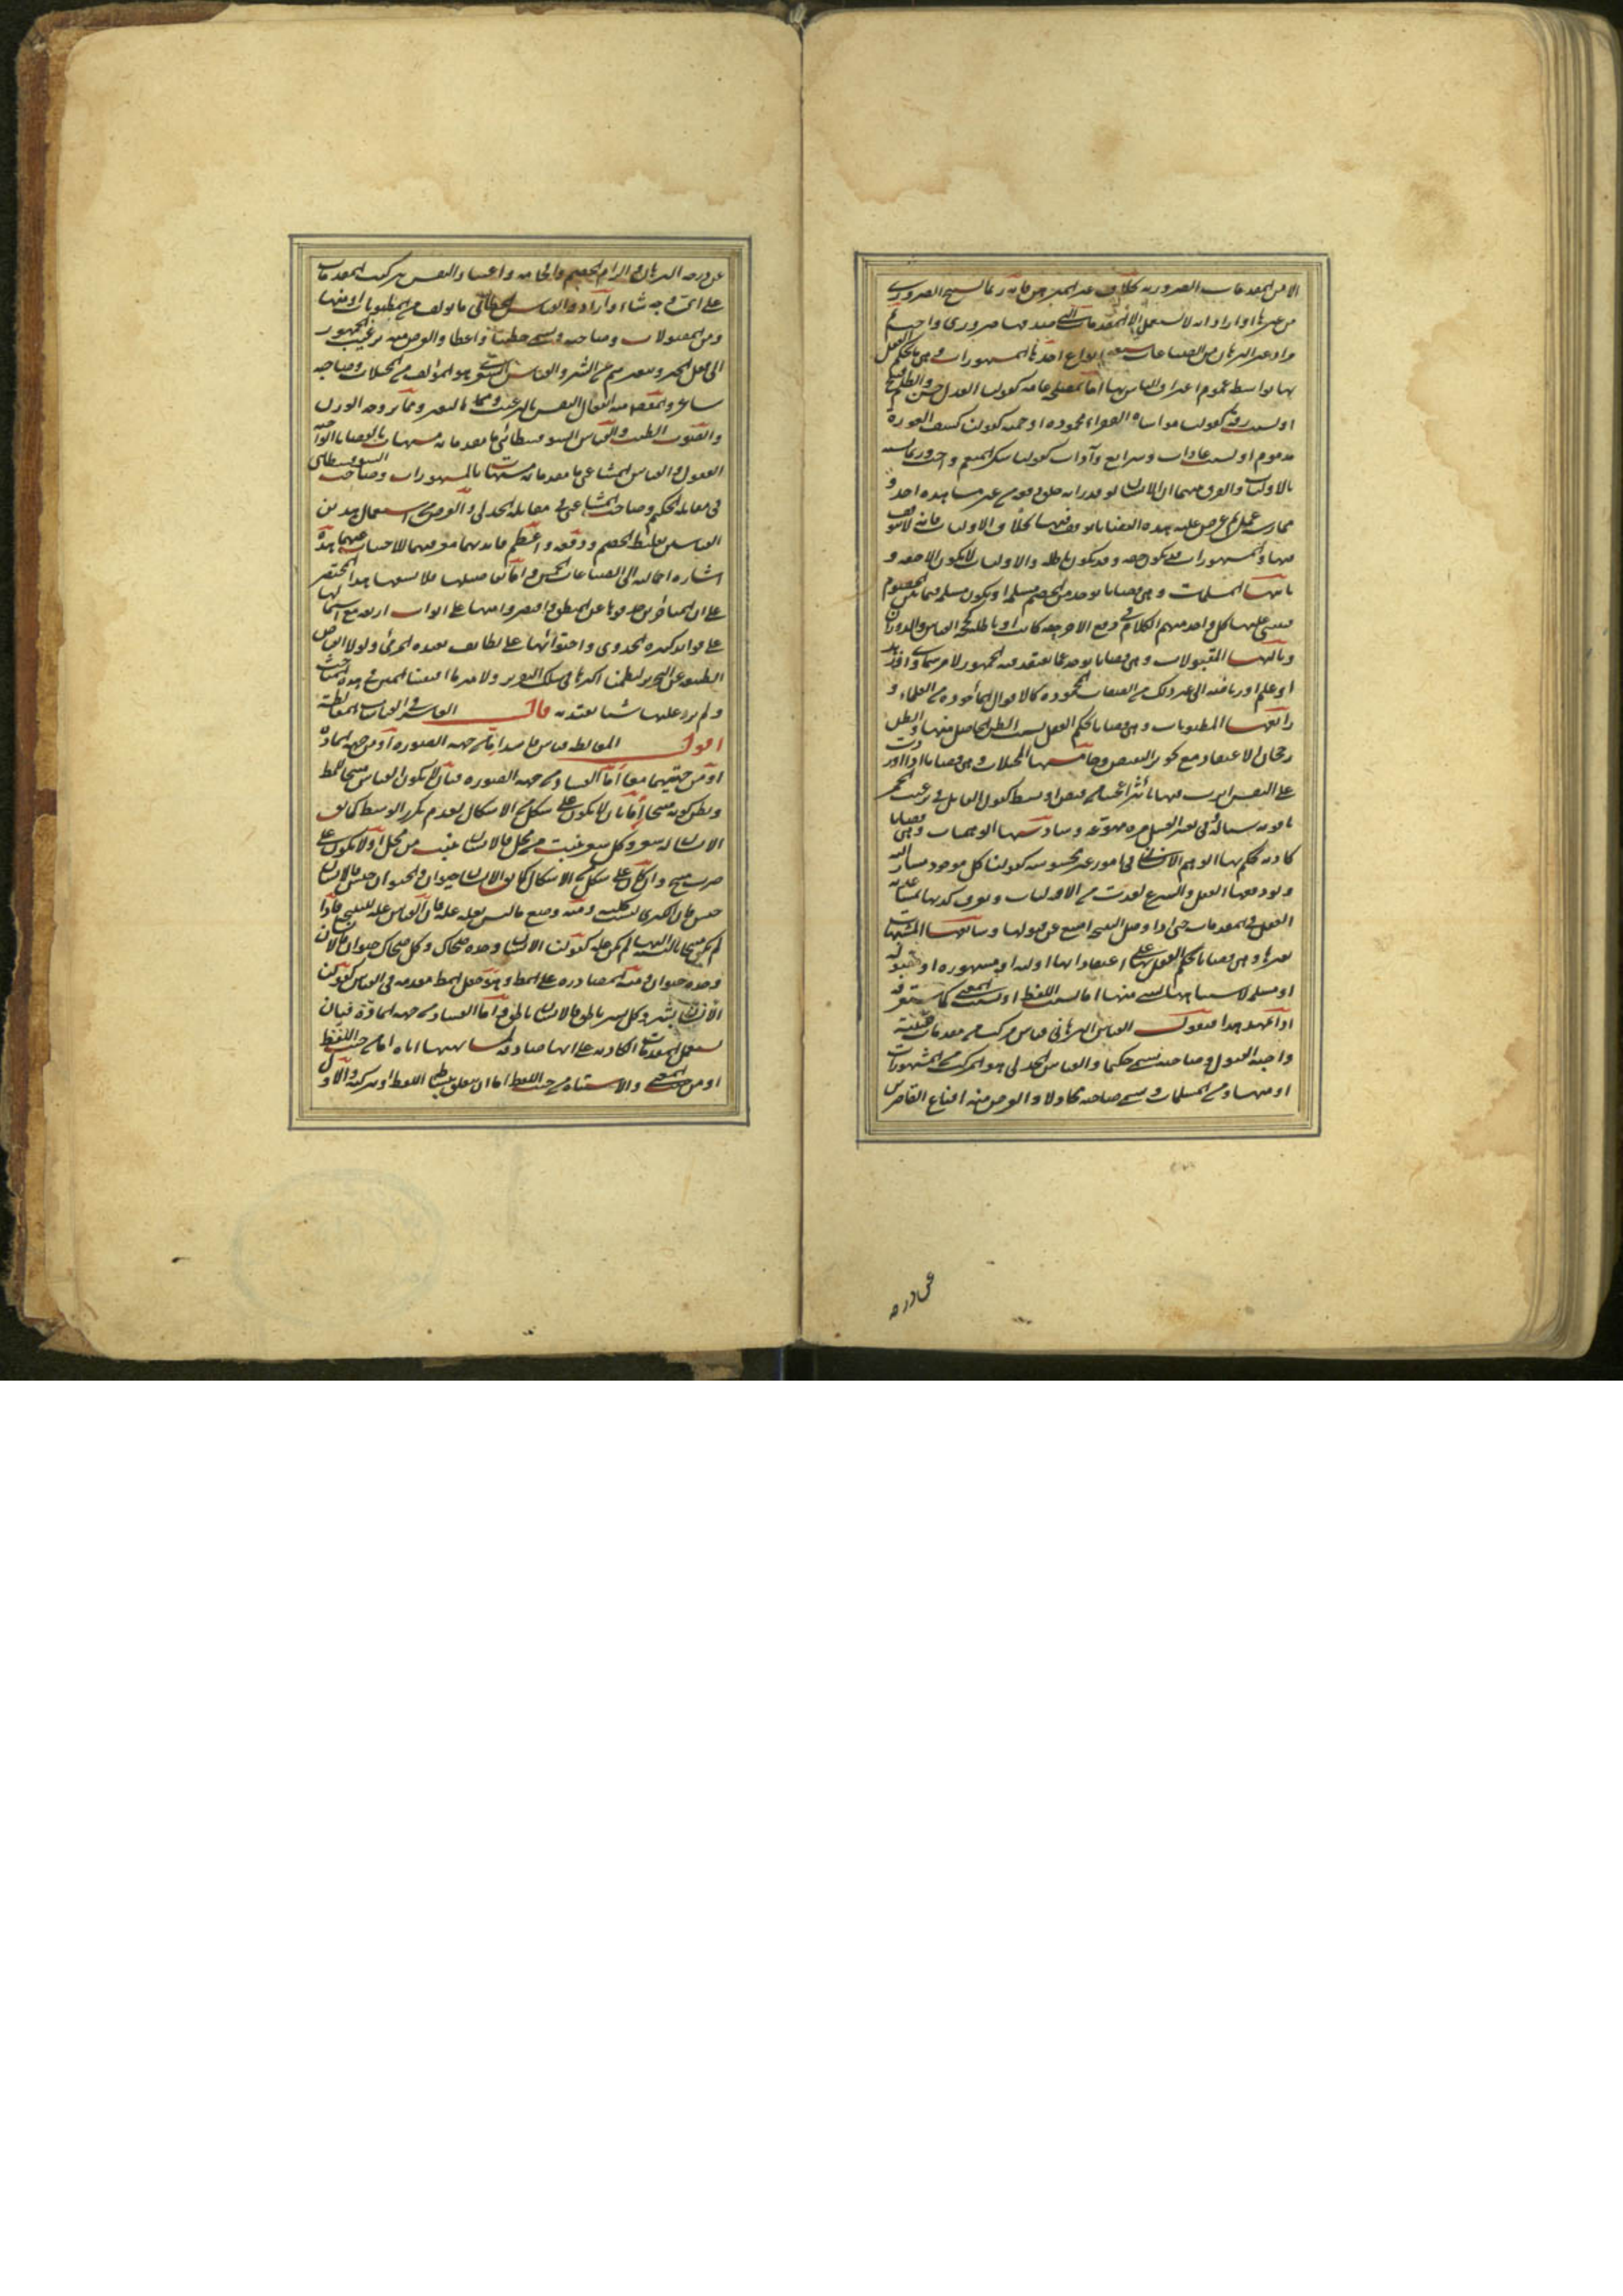 الا من المقدمات الضرورية بخلاف غير المبرهن فانه ربما يستنتج الضرورى
من غيرها او اراد انه لا يستعمل الا المقدمات التى صدقها ضرورى واجب
مواد غير البرهان من الصناعات سبعة انواع احدها المشهورات وهى ما يحكم العقل
بها بواسطة عموم اعتراف الناس بها اما لمصلحة عامة كقولنا العدل حسن والظلم قبيح
او لسبب رقة كقولنا مواساة الفقراء محمودة او حمية كقولنا كشف العورة
مذموم او لسبب عادات وشرايع وآداب كقولنا شكر المنعم واجب وربما تشتبه
بالاوليات والفرق بينهما ان الانسان لو قدر انه خلق دفعة من غير مشاهدة احد و
ممارسة عمل ثم عرض عليه هذه القضايا توقف فيها بخلاف الاوليات فانه لا يتوقف
فيها والمشهورات قد يكون حقة وقد يكون باطلة والاوليات لا يكون الا حقة و
ثانيها المسلمات وهى قضايا توخذ من الخصم مسلمة او يكون مسلمة فيما بين الخصوم
فيبنى عليها كل واحد منهم الكلام فى دفع الاخر حقة كانت او باطلة كحجية القياس والدوران
وثالثها المقبولات وهى قضايا توخذ عمن يعتقد فيه الجمهور لامر سماوى او زهد
او علم او رياضة الى غير ذلك من الصفات المحمودة كالاقوال المأخوذة من العلماء و
رابعها المظنونات وهى قضايا يحكم العقل بسبب الظن الحاصل فيها والظن
رجحان الاعتقاد مع تجويز النقيض وخامسها المخيلات وهى قضايا اذا اوردت
على النفس اثرت فيها تأثيرا عجيبا من قبض او بسط كقول القايل فى ترغيب الخمر
ياقوتة سيالة وفى تنفير العسل مرة مهوعة وسادسها الوهميات وهى قضايا
كاذبة يحكم بها الوهم الانسانى فى امور غير محسوسة كقولنا كل موجود مشار اليه
ولولا دفعها العقل والشرع لعدت من الاوليات ويعرف كذبها بمساعدته
العقل فى المقدمات حتى اذا وصل النتيجة امتنع عن قبولها وسابعها المشبهات
بغيرها وهى قضايا يحكم العقل بها على اعتقاد انها اولية او مشهورة او مقبولة
او مسلمة لاشتباهها بشىء منها اما بسبب اللفظ او بسبب المعنى كما ستعرفه
اذا تمهد هذا فنقول القياس البرهانى قياس مركب من مقدمات يقينية
واجبة القبول وصاحبه يسمى حكيما والقياس الجدلى هو المركب من المشهورات
او منها ومن المسلمات ويسمى صاحبه مجادلا والغرض منه اقناع القاصرين
عن درجة
عن درجة البرهان والزام الخصم وافحامه واعتياد النفس تركيب المقدمات
على اى وجه شاء واراد والقياس الخطابى ما يولف من المظنونات او منها
ومن المقبولات وصاحبه يسمى خطيبا واعظا والغرض منه ترغيب الجمهور
الى فعل الخير وتنفيرهم عن الشر والقياس الشعرى هو المؤلف من المخيلات وصاحبه
شاعر والمقصد منه انفعال النفس بالترغيب والتنفير ومما يروجه الوزن
والصوت الطيب والقياس السوفسطائى ما مقدماته مشبهات بالقضايا الواجبة
القبول والقياس المشاغبى ما مقدماته مشبهات بالمشهورات وصاحب السوفسطائى
فى مقابلة الحكيم وصاحب المشاغبى فى مقابلة الجدلى والغرض من استعمال هذين
القياسين تغليط الخصم ودفعه واعظم فائدتهما معرفتهما للاحتياط عنهما هذه
اشارة اجمالية الى الصناعات الخمس واما تفاصيلها فلا يسعها هذا المختصر
على ان المتأخرين حذفوها عن المنطق واقتصروا منها على ابواب اربعة مع اشتمالها
على فوائد كثيرة الجدوى واحتوائها على لطايف بعيدة المرمى ولولا
ولم يزد عليها شيا يعتد به قال العاشر فى القياسات المغالطة
اقول المغالطة قياس فاسد اما من جهة الصورة او من جهة المادة
او من جهتيهما معا اما الفساد من جهة الصورة فبان لا يكون القياس منتجا للمط
ويظن كونه منتجا اما بان لا يكون على شكل من الاشكال لعدم تكرر الوسط كما يق
الانسان له شعر وكل شعر ينبت من محل فالانسان ينبت من محل او لا يكون على
ضرب منتج وان كان على شكل من الاشكال كما يق الانسان حيوان والحيوان جنس فالانسان
جنس فان الكبرى ليست كلية ومنه وضع ما ليس بعلة علة فان القياس علة للنتيجة فاذا
لم يكن منتجا بالنسبة اليها لم يكن علة كقولنا الانسان وحده ضحاك وكل ضحاك حيوان فالانسان
وحده حيوان ومنه المصادرة على المط وهو جعل المط مقدمة فى القياس كقولنا
الانسان بشر وكل بشر ناطق فالانسان ناطق واما الفساد من جهة المادة فبان
يستعمل المقدمات الكاذبة على انها صادقة لمشابهتها اياه اما من حيث اللفظ
او من حيث المعنى والاشتباه من حيث اللفظ اما ان يتعلق ببسايط اللفظ او بتركيبه والاول